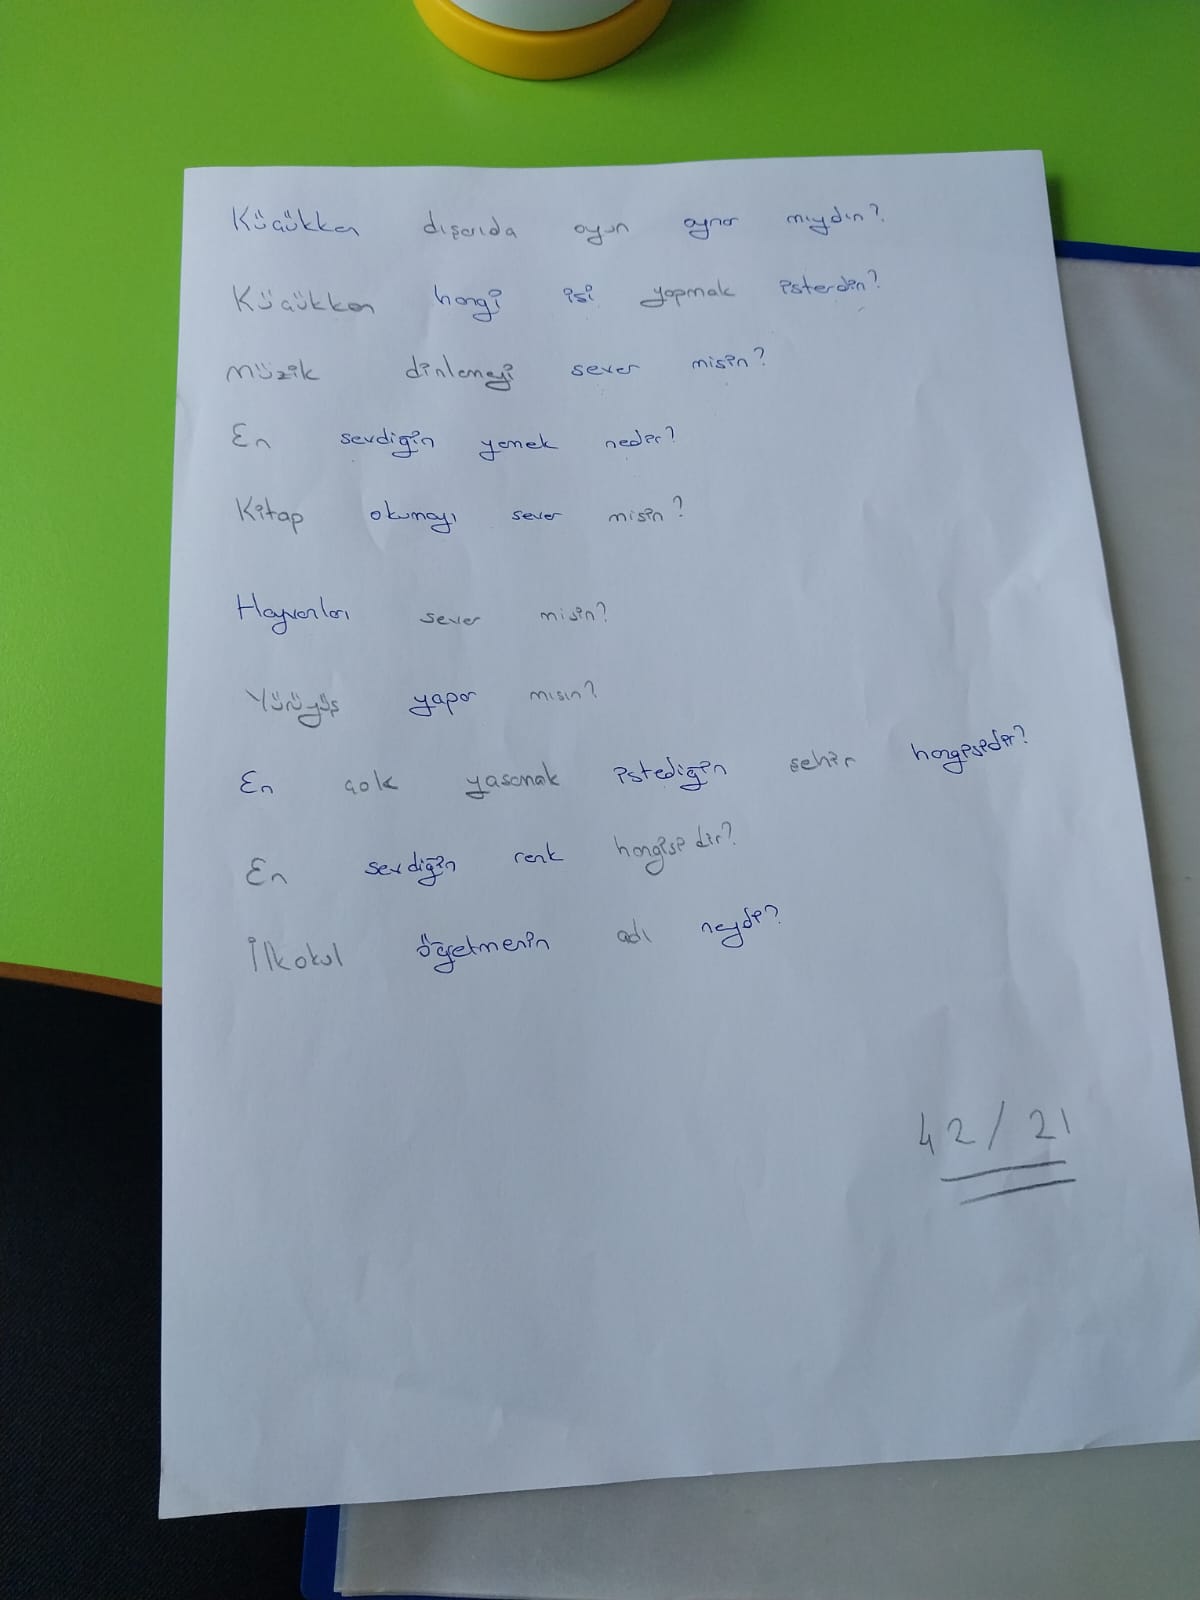 Küçükken dışarıda oyun oynar mıydın?
Küçükken hangi işi yapmak isterdin?
Müzik dinlemeyi sever misin?
En sevdiğin yemek nedir?
Kitap okumayı sever misin?
Hayvanları sever misin?
Yürüyüş yapar mısın?
En çok yaşamak istediğin şehir hangisidir?
En sevdiğin renk hangisidir?
İlkokul öğretmenin adı neydi?
42/21